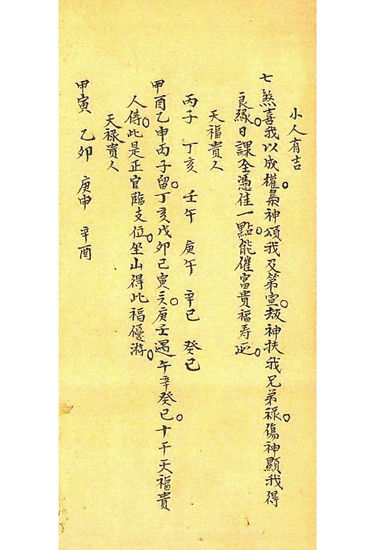 小人有吉
七煞喜我以成權。梟神頌我及第宣。劫神扶我兄弟祿。傷神顯我得
良緣。日課全憑佳一點。能催富貴福壽延。
天福貴人
丙子 丁亥 壬午 庚午 辛巳 癸巳
甲酉乙申丙子留。丁亥戊卯己寅。庚壬遇午辛癸巳。十干天福貴
人俦。此是正官臨支位。坐山得此福優游。
天祿貴人
甲寅 乙卯 庚申 辛酉